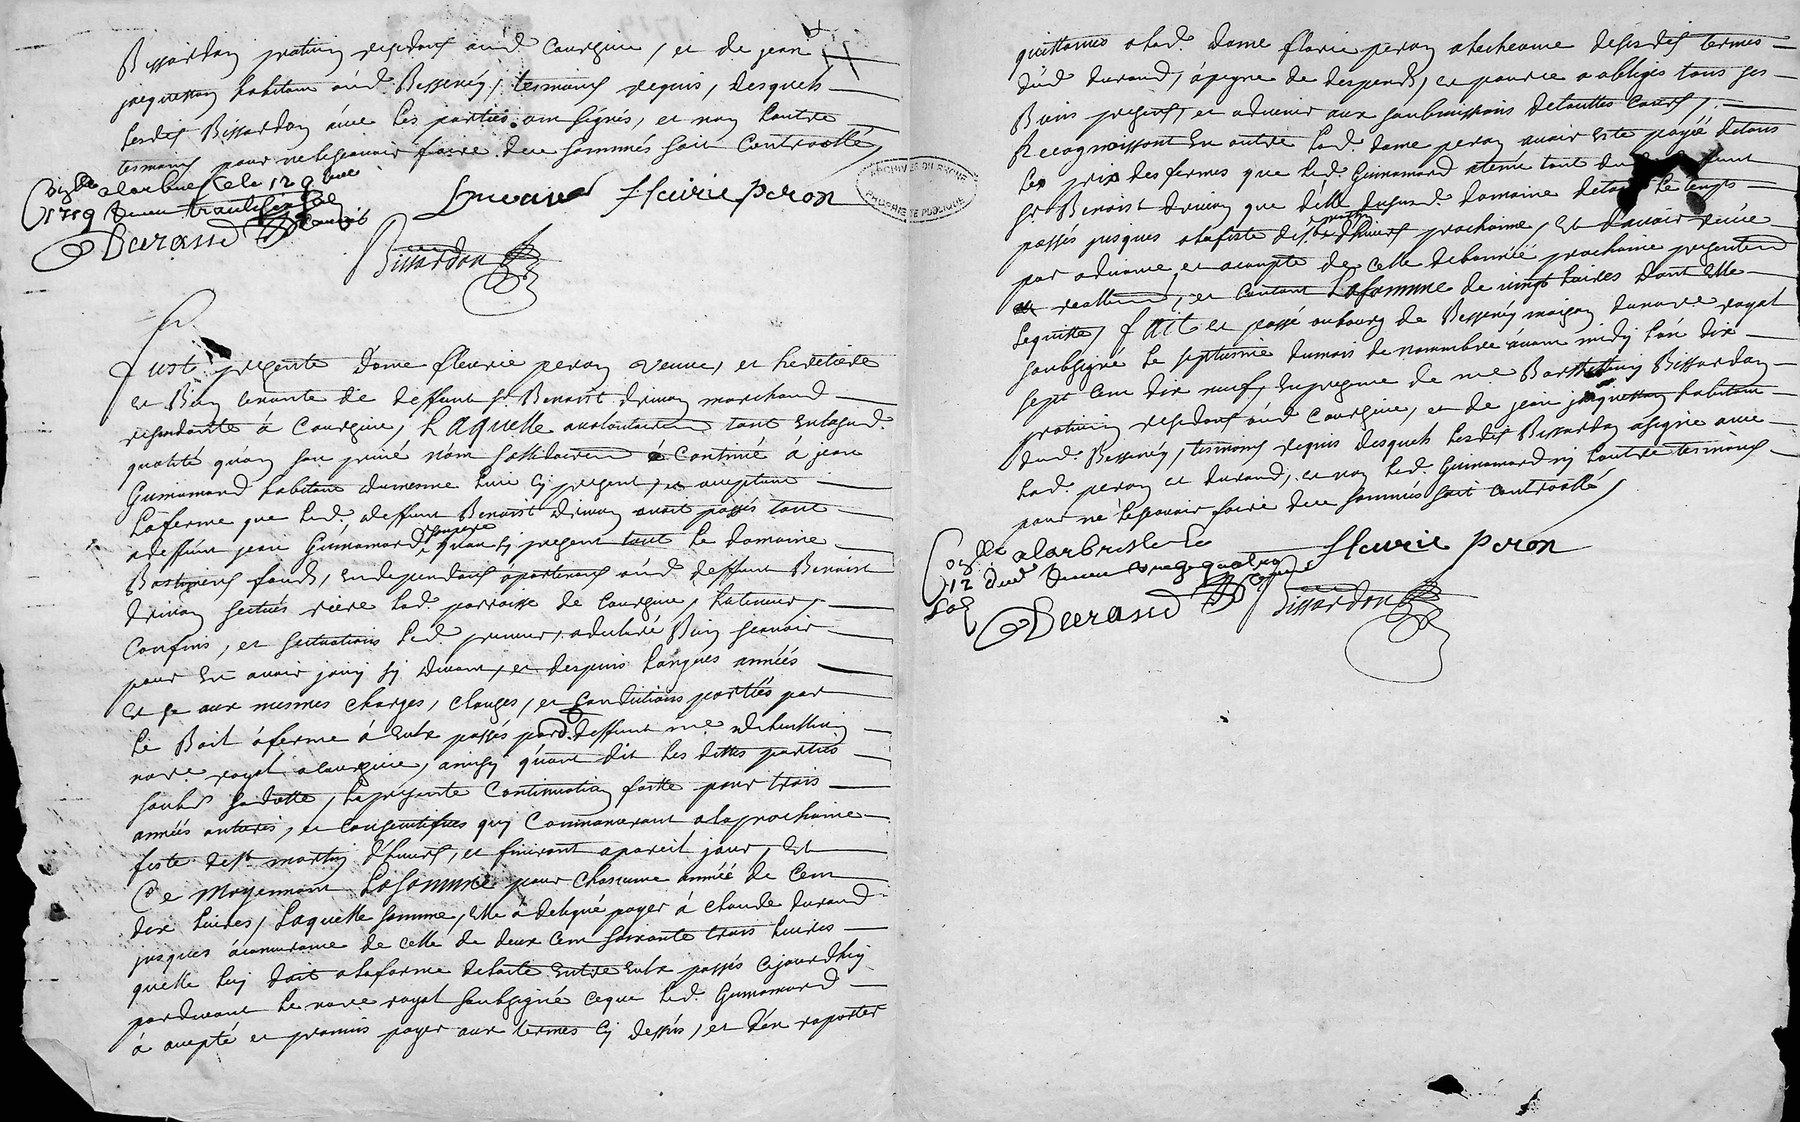 Bissardon praticien residant aud. Courzieu, et de jean
jaquesson habitant aud. Bessenay, tesmoins requis, desquels
lesdits Bissardon avec les parties ont signés, et non l'autre
tesmoins pour ne le scavoir faire deue sommés soit controollé
Durand fleurie peron
1719
Durand
Bissardon
ARCHIVES DU RHONE
PROPRIETE PUBLIQUE
fust presente dame fleurie peron veuve, et heretiere
et Bien tenante de deffunt sr. Benoist drivon marchand
residante à Courzieu, Laquelle
qualité quen son privé nom sollidairem. a Continué à jean
Guinamard habitant du mesme lieu cy present, et aceptant
La ferme que led. deffunt Benoist drivon avoit passés tant
a deffunt jean Guinamard son pere quau cy present tout le domaine
Bastimens fonds, en dependans apartenans aud. deffunt Benoist
drivon scitués riere lad. parroisse de Courzieu,
Confins, et scituations led. preneur a declaré Bien scavoir
pour en avoir jouy cy devant, et despuis longues années
et ce aux mesmes charges, clauzes, et Conditions portées par
le Bail a ferme à Eux passés par deffunt me
nore royal a Courzieu, ainsy quont dit les dittes parties
la presente Continuation faitte pour trois
années entieres, et Consecutifves quy Commanceront a la prochaine
feste de st. martin d'hivert, et finiront a pareil jour, Et
Ce Moyennant La somme pour chascune année de Cent
dix livres, Laquelle somme, Elle a deligué payer à claude durand
jusques à concurance de celle de deux cent soixante trois livres
quelle luy doit a la forme de lacte Entre Eux passés cejourdhuy
pardevant le nore royal soubsigné ceque led. Guinamard
a accepté et promis payer aux termes cy dessus, et den raporter
quittances a lad. dame fleurie peron a lecheance desdits termes
dud. durand, à peyne de despends, et pour ce a obligés tous ses
Biens presens, et advenir aux soubmissions de touttes Cours,
Recognoissant En outre lad. dame peron avoir Esté payée de tous
les prix des fermes que led. Guinamard a tenu tant du
sr. Benoist drivon que delle dud. domaine de tout le temps
passés jusques a la feste de st. martin dhivert prochaine, Et davoir reçue
par advance, et acompte de celle de l'année prochaine presentem.
et reallem., et Contant La somme de vingt livres dont Elle
le quitte, fait et passé au bourg de Bessenay maison du nore royal
soubsigné le septiesme du mois de novembre avant midy lan dix
sept cent dix neuf, En presence de me Barthelemy Bissardon
praticien residant aud. Courzieu, et de jean jaquesson habitant
dud. Bessenay, tesmoins requis desquels lesdits Bissardon a signé avec
lad. peron et durand, et non led. Guinamard ny lautre tesmoins
pour ne le scavoir faire deue sommés soit controollé
fleurie peron
Durand
Bissardon